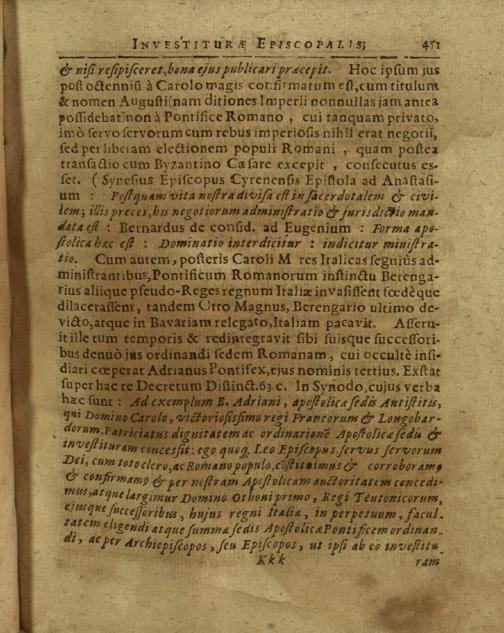 INVESTITURÆ EPISCOPALIS; 451
& nisi resipisceret, bona ejus publicari præcepit. Hoc ipsum jus
post octenniū à Carolo magis confirmatum est, cum titulum
& nomen Augusti (nam ditiones Imperii nonnullas jam antea
possidebat) non à Pontifice Romano, cui tanquam privato,
imò servo servorum cum rebus imperiosis nihil erat negotii,
sed per liberam electionem populi Romani, quam postea
transactio cum Byzantino Cæsare excepit, consecutus es-
set. (Synesius Episcopus Cyrenensis Epistola ad Anastasi-
um : Postquam vita nostra divisa est in sacerdotalem & civi-
lem; illis preces, his negotiorum administratio & jurisdictio man-
data est : Bernardus de consid. ad Eugenium : Forma apo-
stolica hæc est : Dominatio interdicitur : indicitur ministra-
tio. Cum autem, posteris Caroli M res Italicas segniùs ad-
ministrantibus, Pontificum Romanorum instinctu Berenga-
rius aliique pseudo-Reges regnum Italiæ invasissent fœdèque
dilacerassent, tandem Otto Magnus, Berengario ultimo de-
victo, atque in Bavariam relegato, Italiam pacavit. Asseru-
it ille tum temporis & redintegravit sibi suisque successori-
bus denuò jus ordinandi sedem Romanam, cui occultè insi-
diari cœperat Adrianus Pontifex, ejus nominis tertius. Exstat
super hac re Decretum Distinct. 63. c. In Synodo, cujus verba
hæc sunt : Ad exemplum B. Adriani, apostolicæ sedis Antistitis,
qui Domino Carolo, victoriosissimo regi Francorum & Longobar-
dorum, Patriciatus dignitatem ac ordinationē Apostolicæ sedis &
investituram concessit: ego quoq, Leo Episcopus servus servorum
Dei, cum toto clero, ac Romano populo, cōstituimus & corroboramꝰ
& confirmamꝰ & per nostram Apostolicam auctoritatem concedi-
mus, atque largimur Domino Othoni primo, Regi Teutonicorum,
ejusque successoribus, hujus regni Italiæ, in perpetuum, facul-
tatem eligendi atque summæ sedis Apostolicæ Pontificem ordinan-
di, ac per Archiepiscopos, seu Episcopos, ut ipsi ab eo investitu
Kkk ram